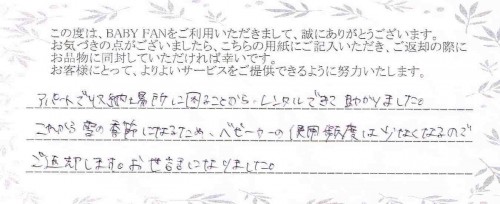 この度は、BABY FANをご利用いただきまして、誠にありがとうございます。
お気づきの点がございましたら、こちらの用紙にご記入いただき、ご返却の際に
お品物に同封していただければ幸いです。
お客様にとって、よりよいサービスをご提供できるように努力いたします。
アパートで収納場所に困ることから、レンタルできて助かりました。
これから雪の季節になるため、ベビーカーの使用頻度は少なくなるので
ご返却します。お世話になりました。